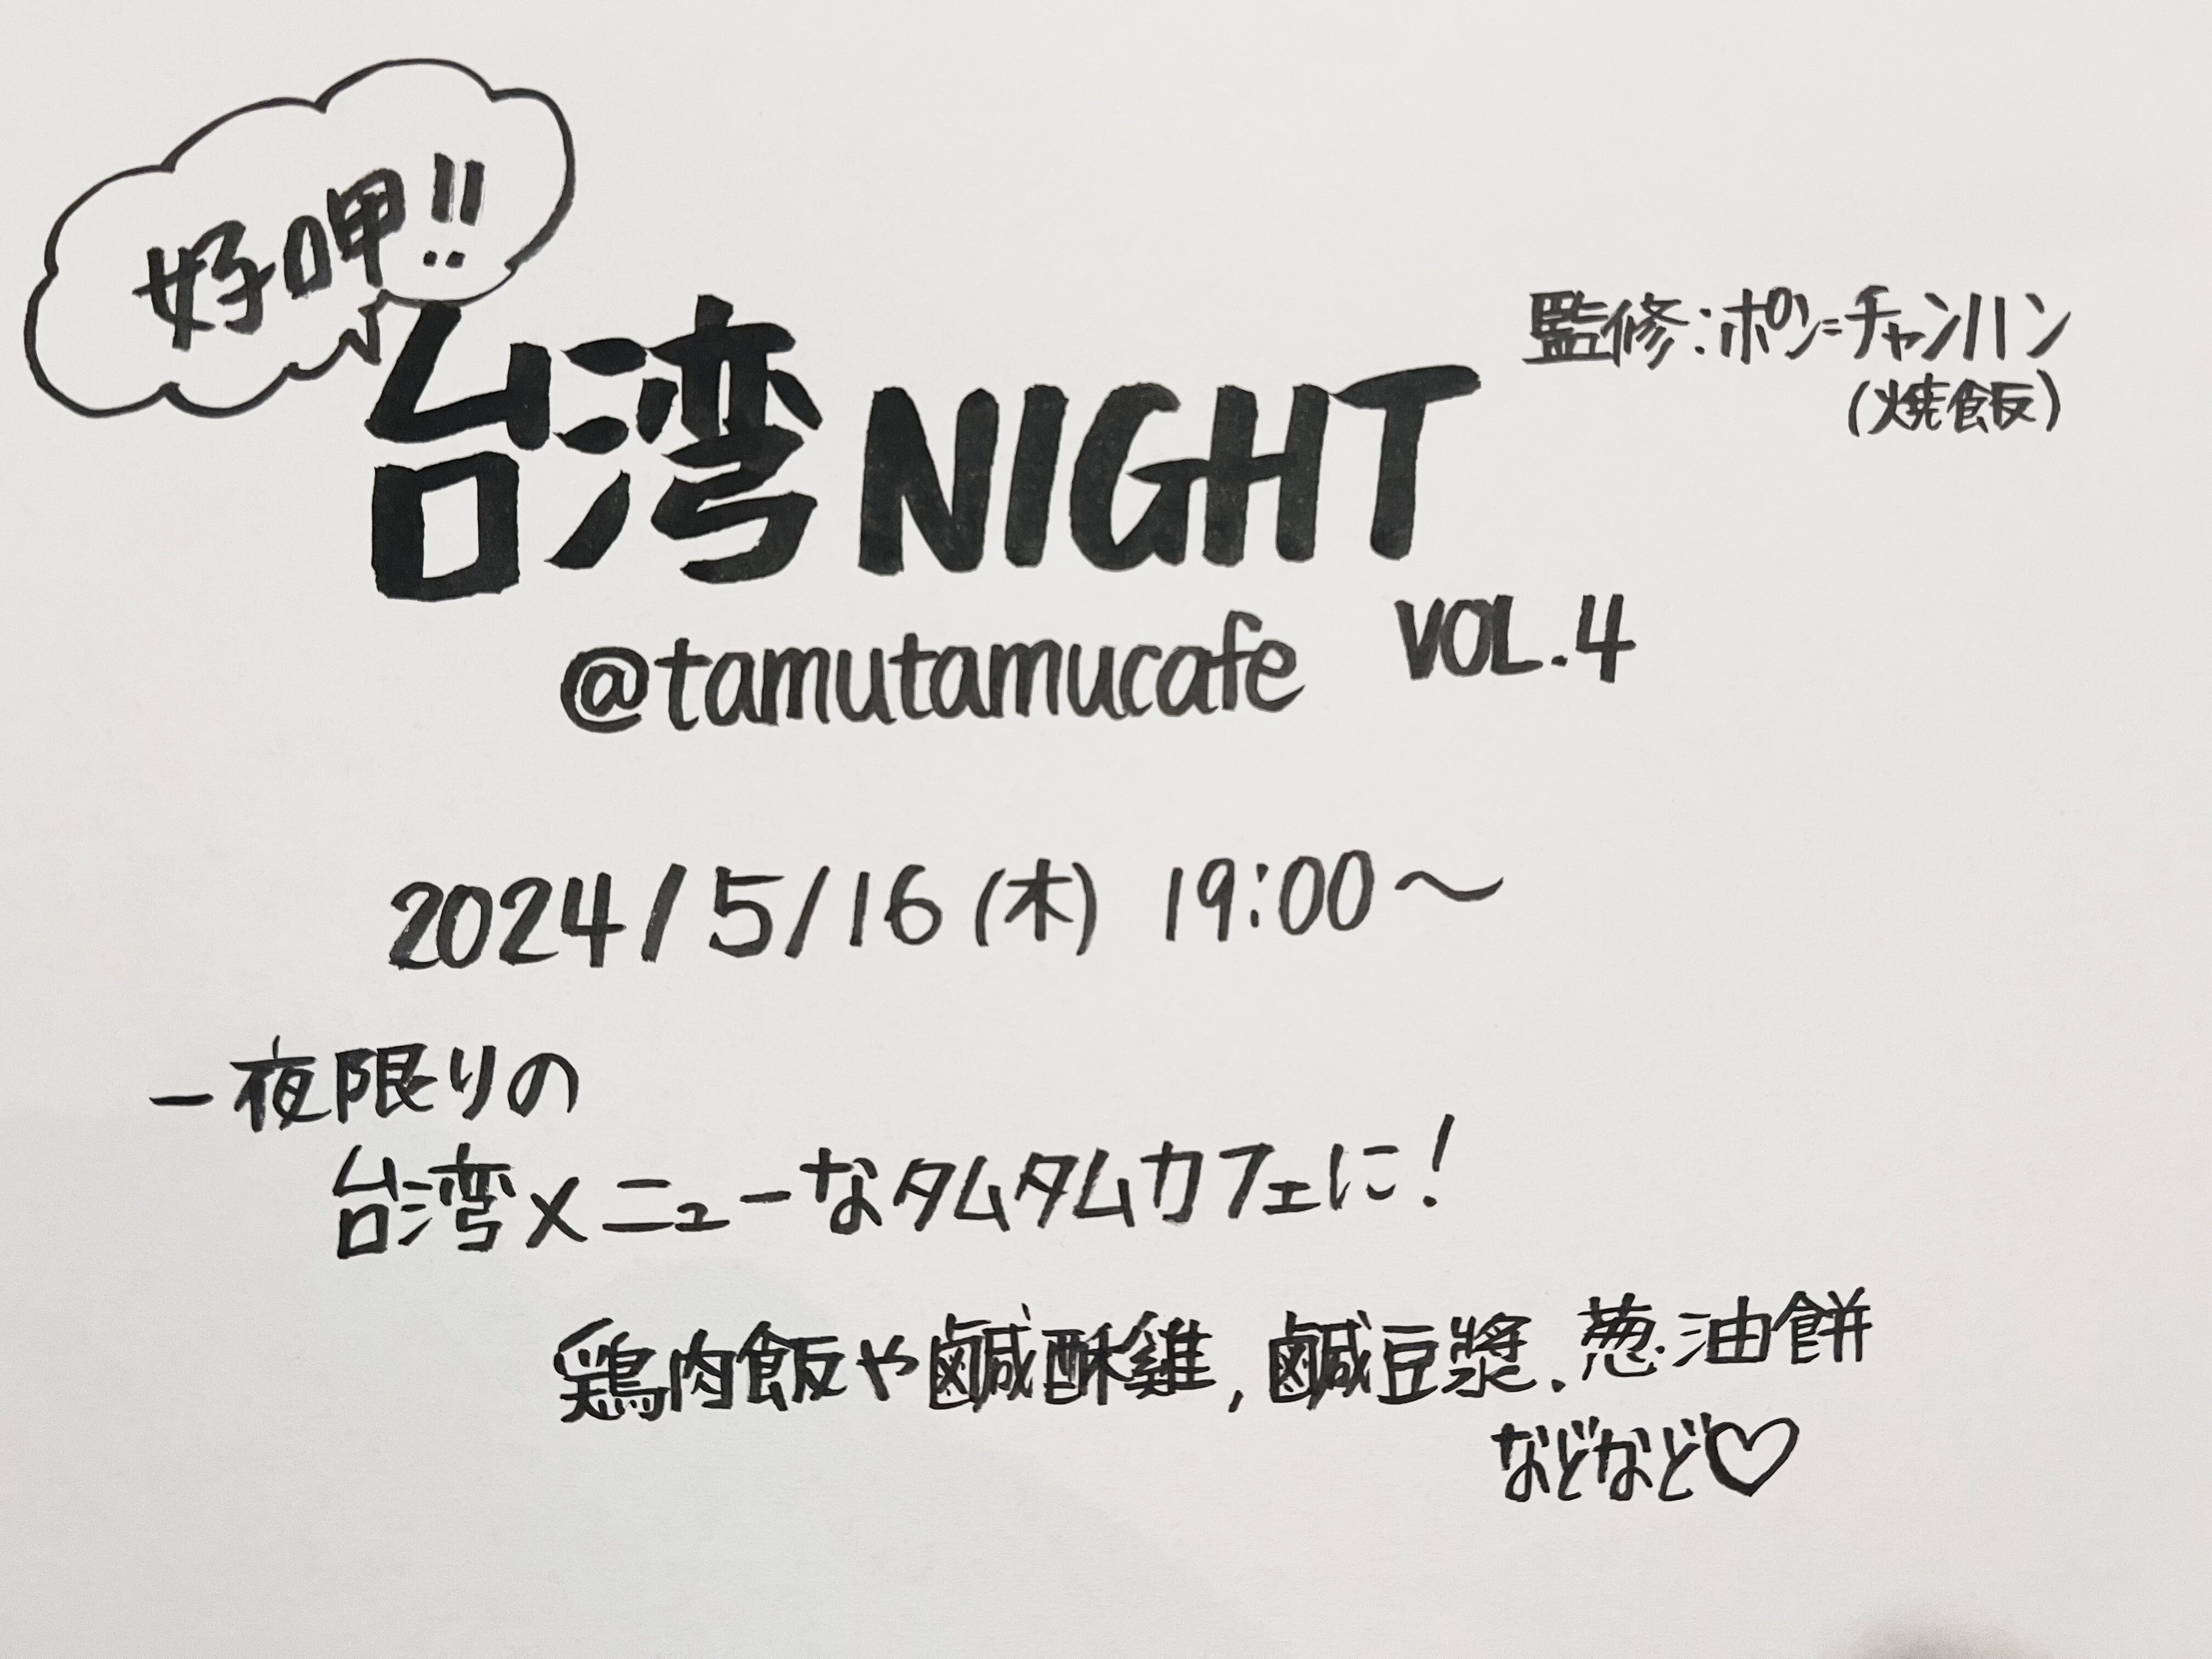 好呷!!
台湾NIGHT
監修:ポン=チャンハン
(焼飯)
@tamutamucafe VOL.4
2024/5/16(木) 19:00〜
一夜限りの
台湾メニューなタムタムカフェに!
鶏肉飯や鹹酥雞,鹹豆漿.葱油餅
などなど♡